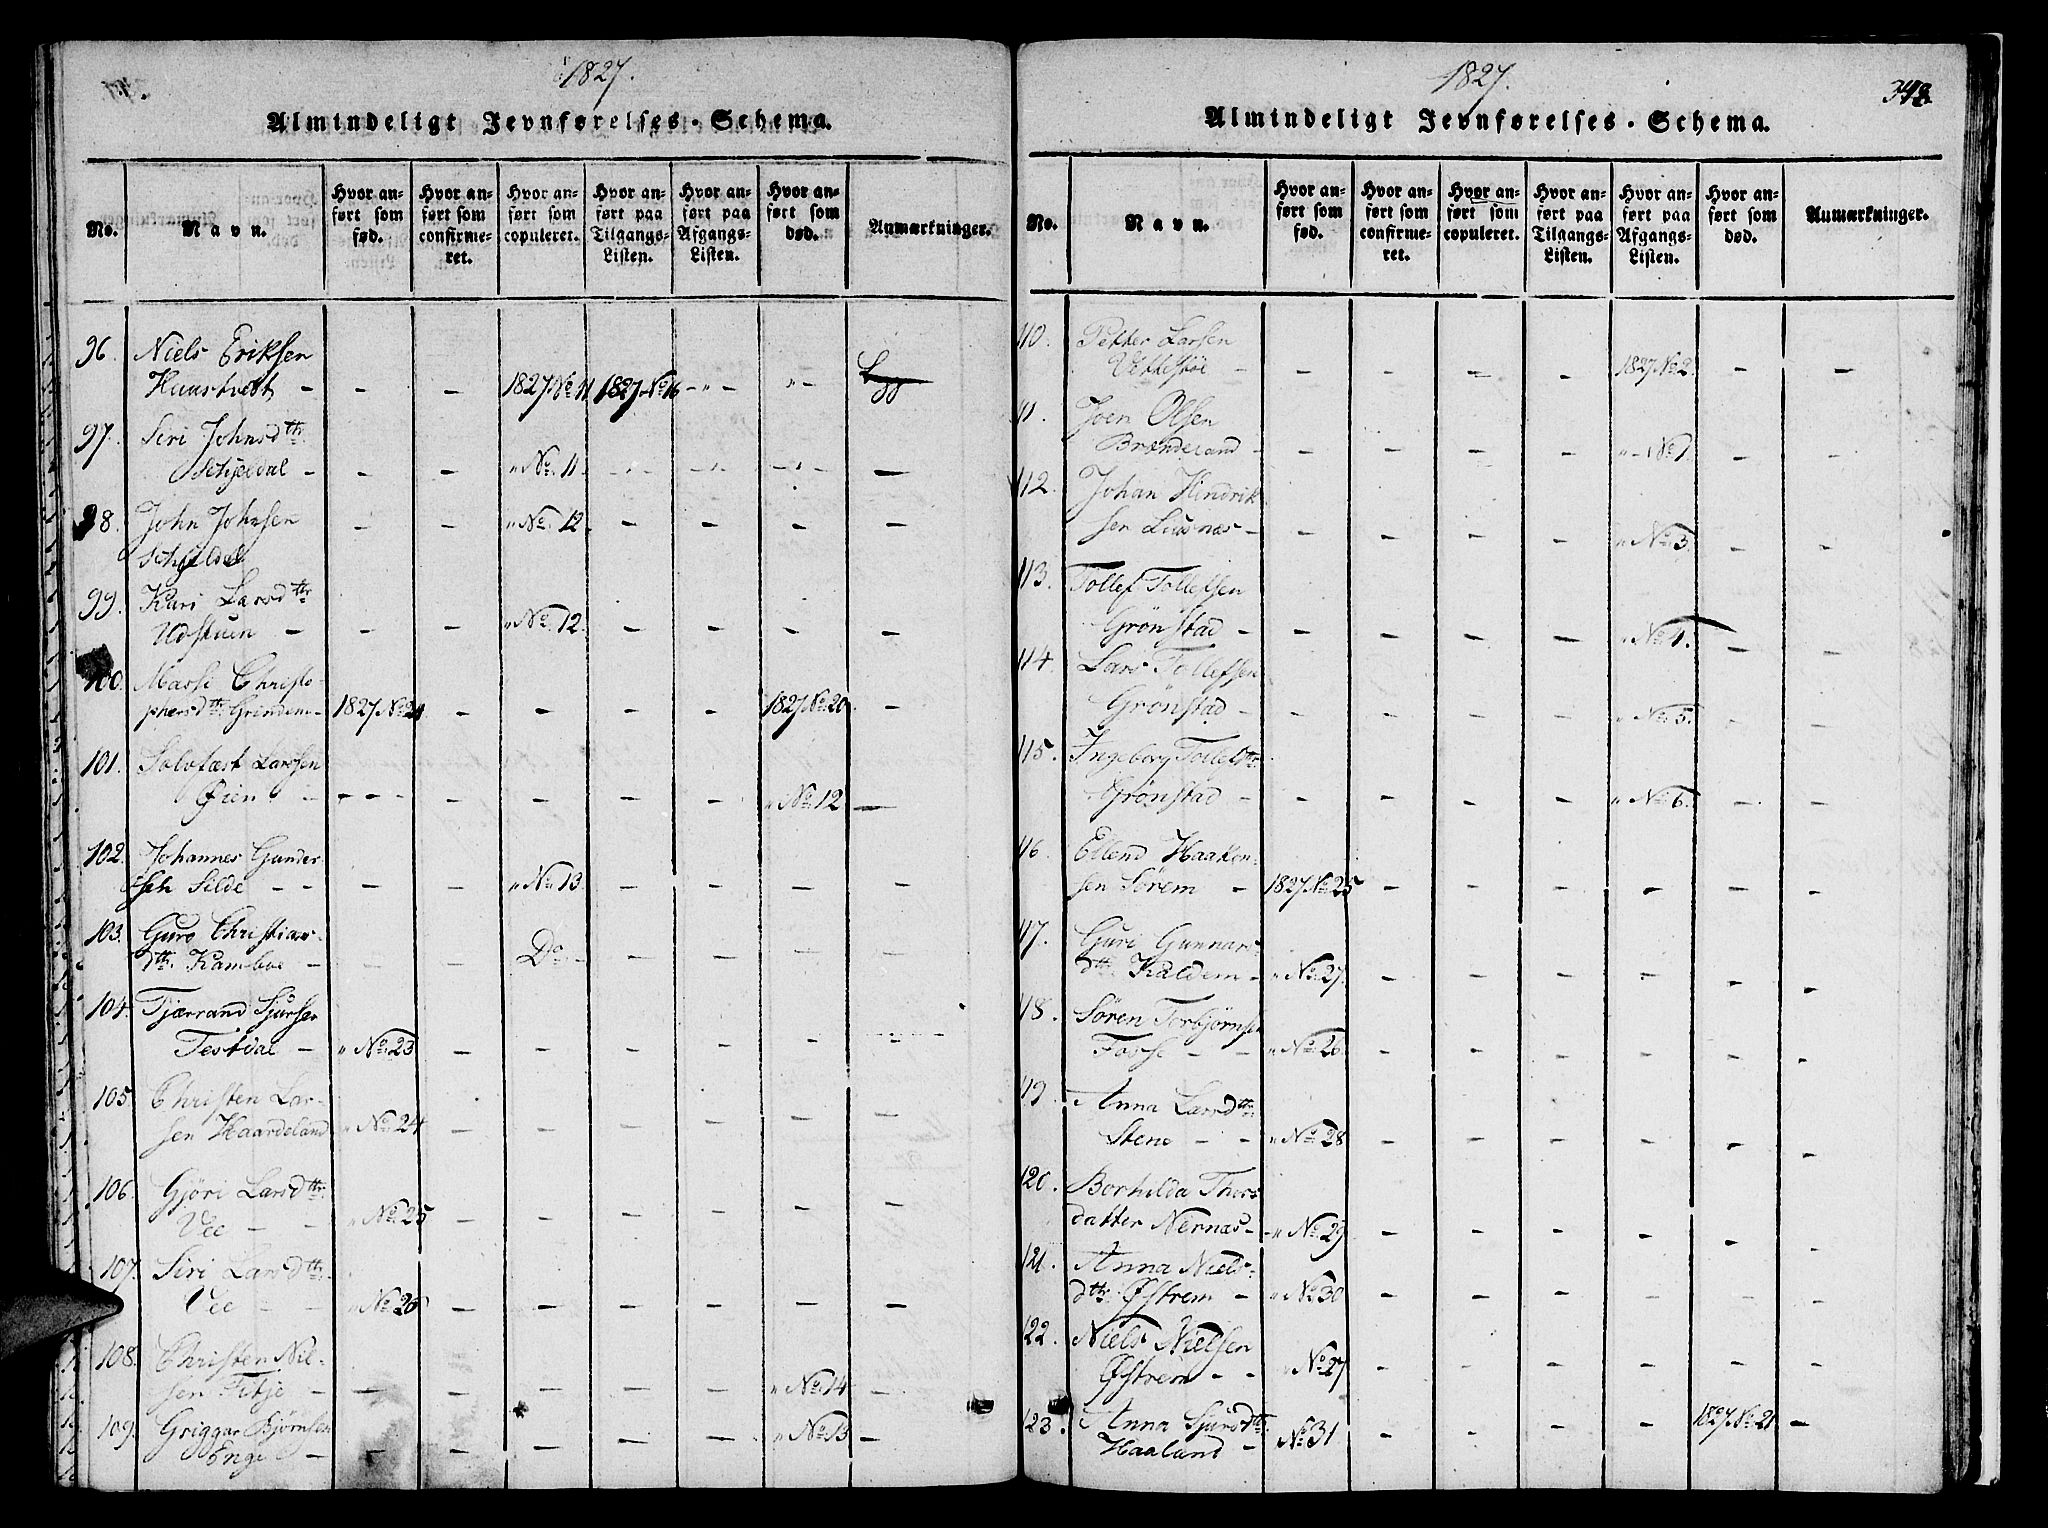 1827.
Almindeligt Jevnførelses-Schema.
No. Navn. Hvor anført som fød. Hvor anført som confirmeret. Hvor anført som copuleret. Hvor anført paa Tilgangs-Listen. Hvor anført paa Afgangs-Listen. Hvor anført som død. Anmærkninger.
96. Niels Eriksen
Haustvett - - - 1827 No 11 1827 No 16 - „ - „ -
97. Siri Johnsdttr
Schjeldal - - - „ No 11 - - - -
98. John Johnsen - - „ No. 12 - - - -
Schjeldal
99. Kari Larsdttr
Udstuen - - - „ No 12. - - - -
100. Massi Christo-
phersdttr Grindem - 1827 No 21 - - - - 1827 No 20 -
101. Solvfæst Larssen
Øien - - - - - - - „ No 12. -
102. Johannes Gunder
sen Silde - - - - „ No 13 - - - -
103. Guro Christians-
dttr. Kamboe - - - Do - - - - -
104. Tjærrand Sjursen
Testdal - „ No 23 - - - - - -
105. Christen Lar-
sen Haardeland „ No 24 - - - - - -
106. Gjöri Larsdttr.
Vee - - „ No 25 - - - - - -
107. Siri Larsdttr.
Vee - - „ No 26 - - - - - -
108. Christen Nil-
sen Fitje - - - - - - „ No 14 -
109. Griggar Bjørnsen
Enge - - - - - - „ No 13 -
1827.
348
Almindeligt Jevnførelses-Schema.
No. Navn. Hvor anført som fød. Hvor anført som confirmeret. Hvor anført som copuleret. Hvor anført paa Tilgangs-Listen. Hvor anført paa Afgangs-Listen. Hvor anført som død. Anmærkninger.
110. Petter Larsen
Vettestøe - - - - - 1827 No 2 - -
111. Joen Olsen
Brænderand - - - - - „ - No 1. - -
112. Johan Hindrik
sen Lusnæs - - - - - „ No. 3. - -
113. Tollef Tollefsen
Grönstad - - - - - „ No 4. - -
114. Lars Tollefsen
Grönstad - - - - - „ No 5. - -
115. Ingeborg Tollefsdtr.
Grönstad - - - - - „ No 6. - -
116. Ellend Haaken-
sen Sörem - 1827 No 25 - - - - - -
117. Guri Gunnars-
dttr. Kaldem - „ No 27. - - - - - -
118. Sören Torbjörnsen
Fosse - - „ No 26. - - - - - -
119. Anna Larsdttr.
Stene - - „ No 28 - - - - - -
120. Borhilda Thors
datter Nernæs - „ No 29 - - - - - -
121. Anna Niels-
dttr. Østrem - „ No 30 - - - - - -
122. Niels Nielsen
Østrem - - „ No 27 - - - - - -
123. Anna Sjursdttr.
Haaland - No 31 - - - - 1827 No 21 -